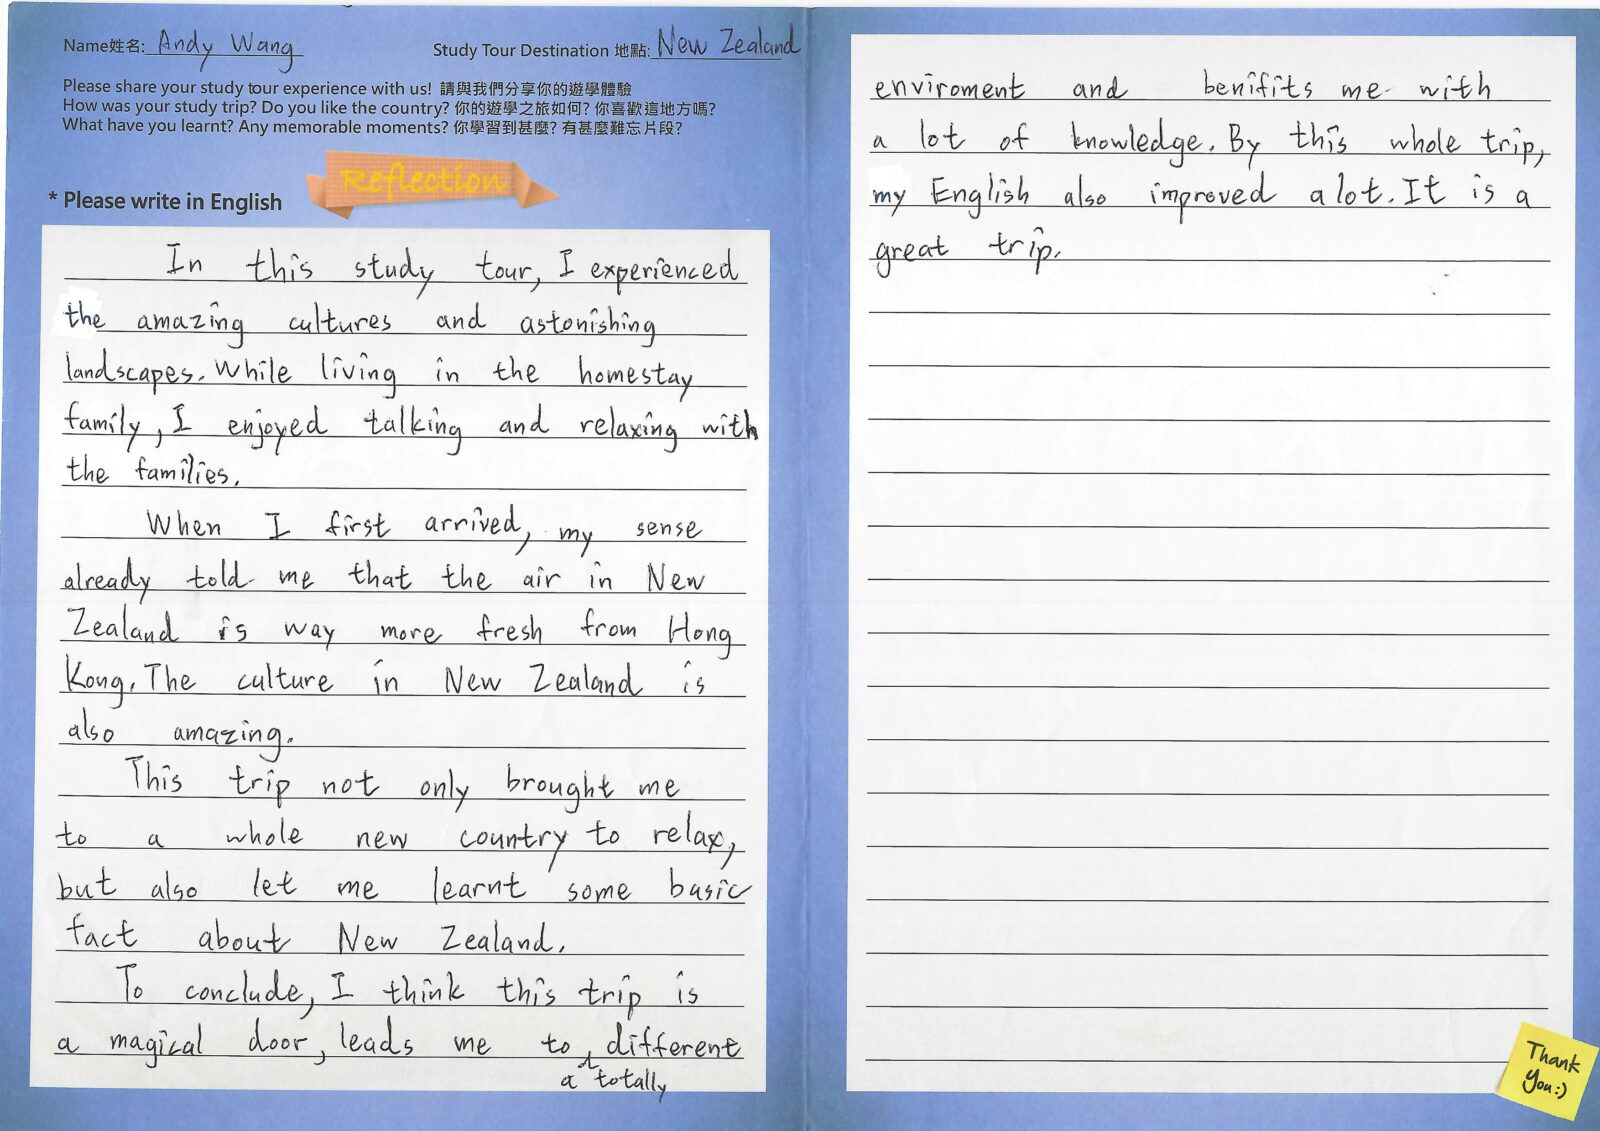 Name姓名: Andy Wang
Study Tour Destination 地點: New Zealand
Please share your study tour experience with us! 請與我們分享你的遊學體驗
How was your study trip? Do you like the country? 你的遊學之旅如何? 你喜歡這地方嗎?
What have you learnt? Any memorable moments? 你學習到甚麼? 有甚麼難忘片段?
Reflection
* Please write in English
In this study tour, I experienced
the amazing cultures and astonishing
landscapes. While living in the homestay
family, I enjoyed talking and relaxing with
the families.
When I first arrived, my sense
already told me that the air in New
Zealand is way more fresh from Hong
Kong. The culture in New Zealand is
also amazing.
This trip not only brought me
to a whole new country to relax,
but also let me learnt some basic
fact about New Zealand.
To conclude, I think this trip is
a magical door, leads me to different
a totally
enviroment and benifits me with
a lot of knowledge. By this whole trip,
my English also improved a lot. It is a
great trip.
Thank
You:)